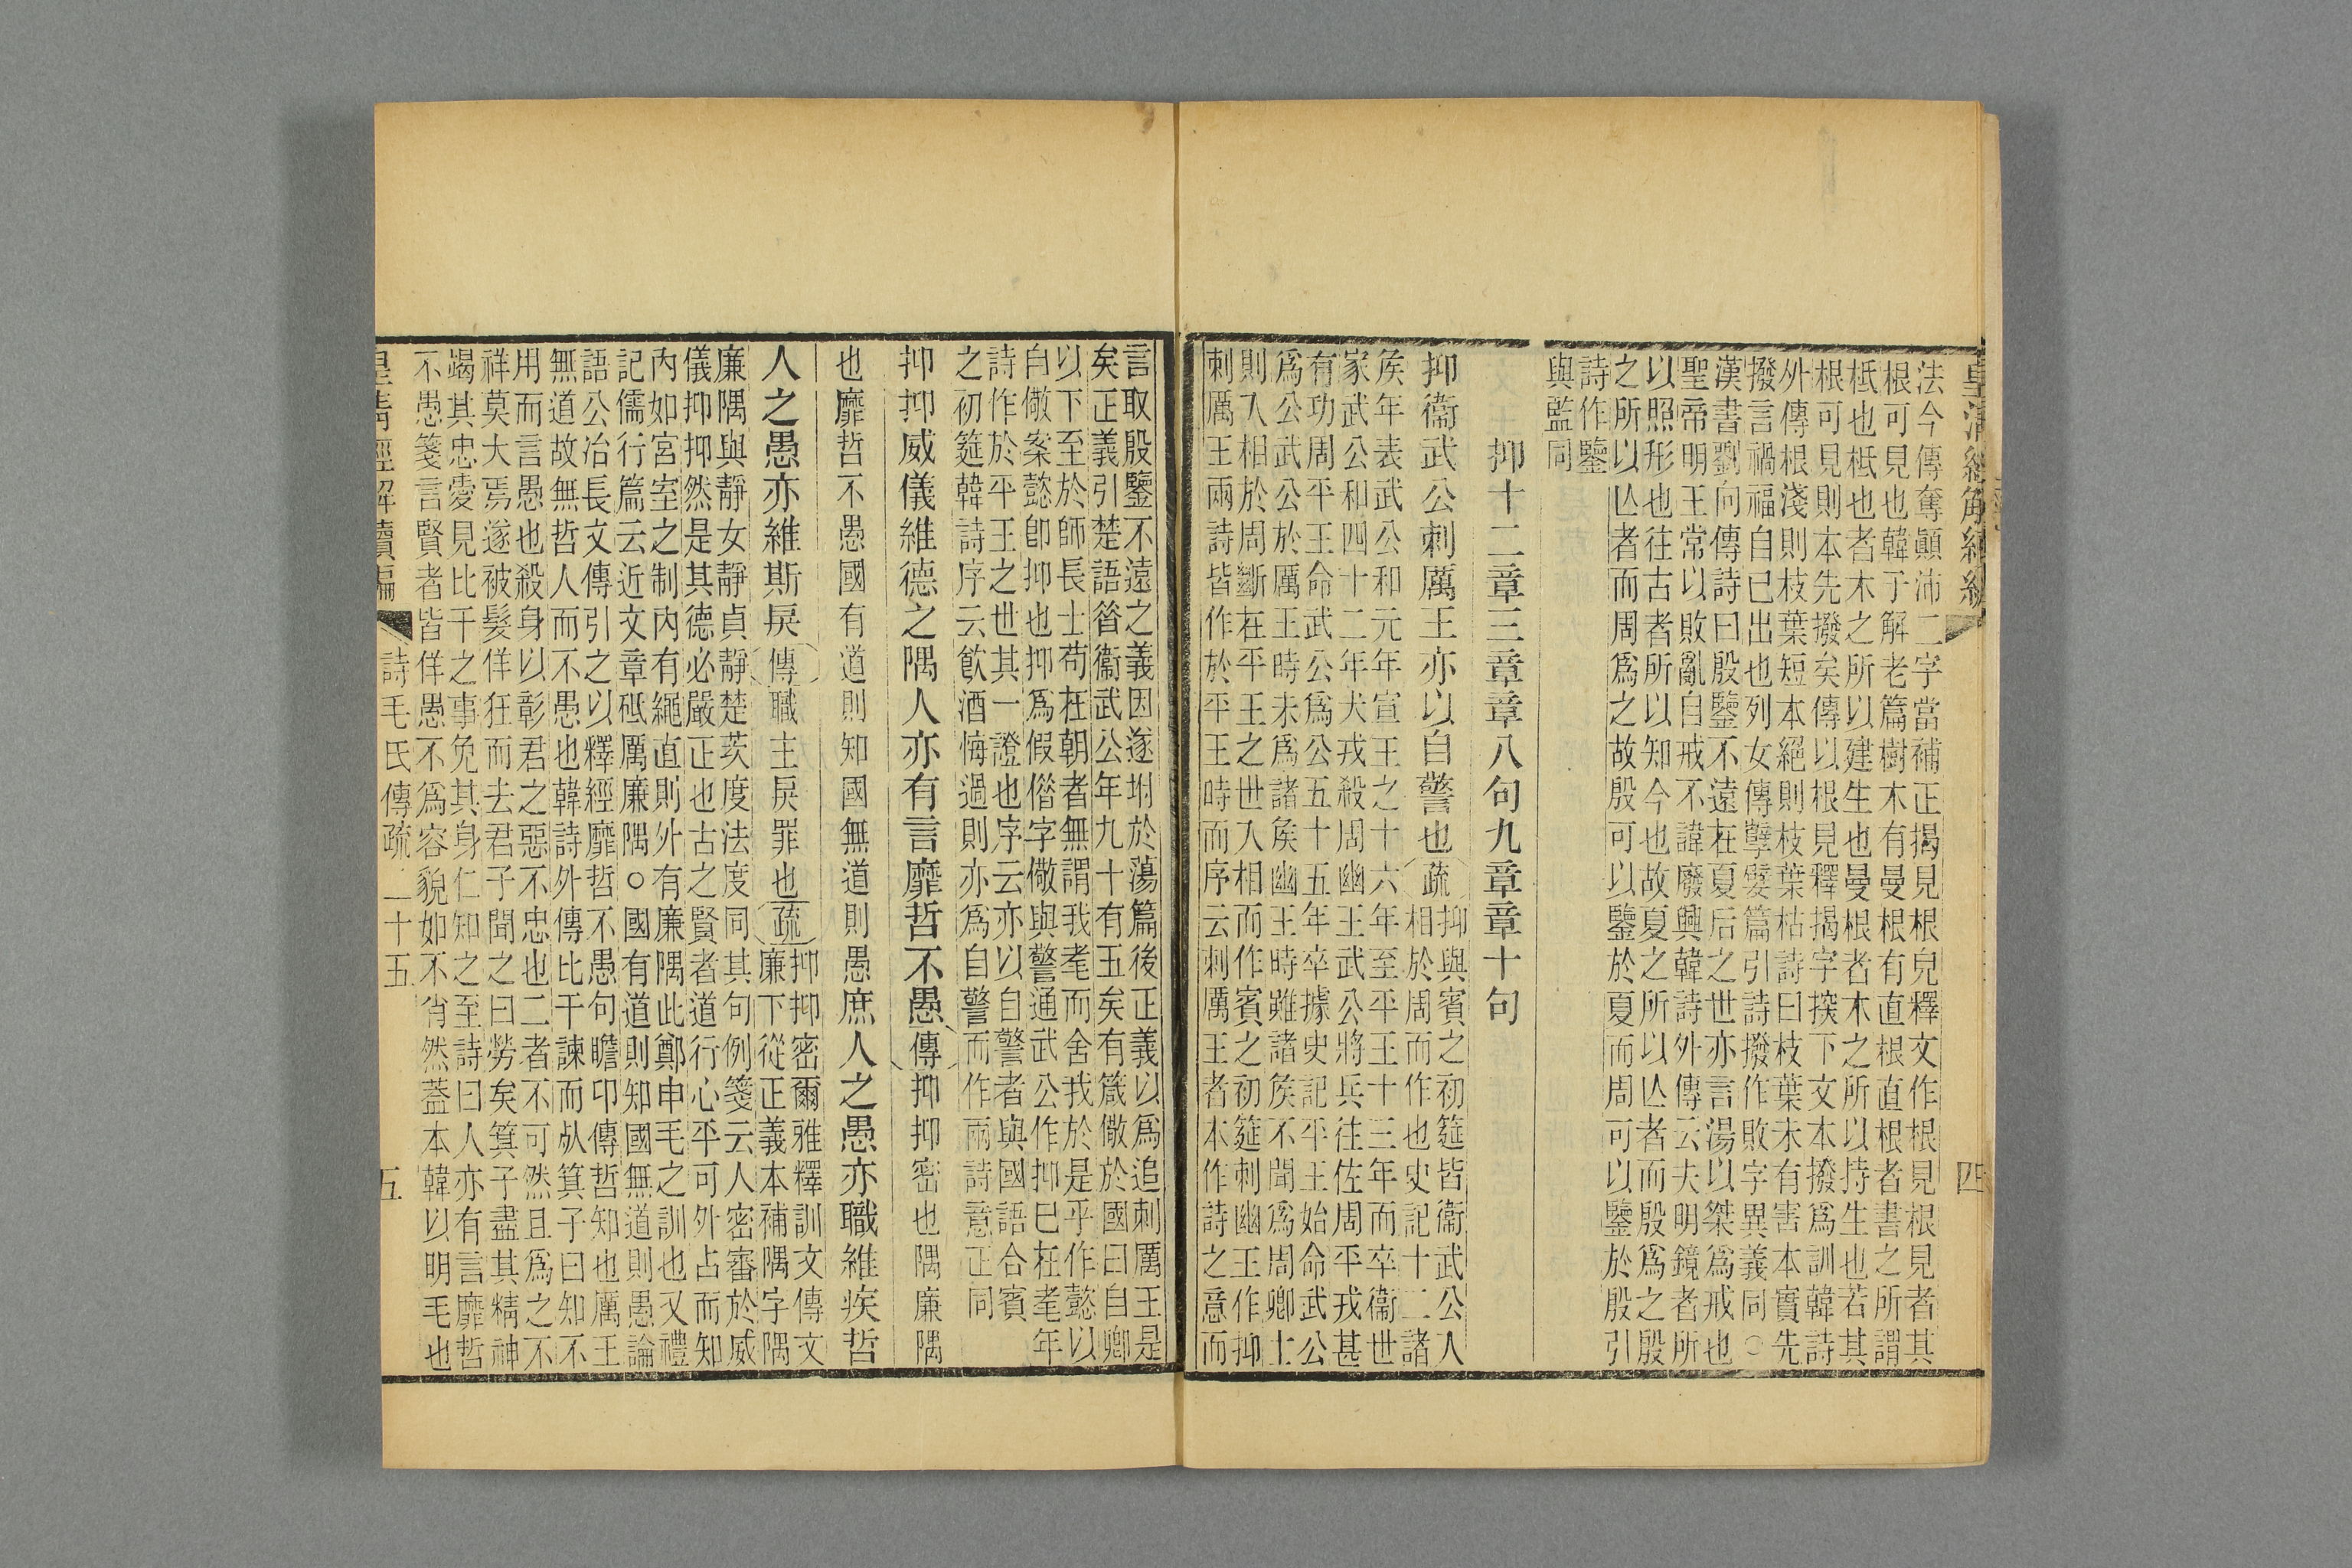 皇清經解續編
四
法今傳奪顚沛二字當補正揭見根皃釋文作根見根見者其
根可見也韓子解老篇樹木有曼根有直根直根者書之所謂
柢也柢也者木之所以建生也曼根者木之所以持生也若其
根可見則本先撥矣傳以根見釋揭字揆下文本撥爲訓韓詩
外傳根淺則枝葉短本絕則枝葉枯詩曰枝葉未有害本實先
撥言禍福自己出也列女傳孽嬖篇引詩撥作敗字異義同○
漢書劉向傳詩曰殷鑒不遠在夏后之世亦言湯以桀爲戒也
聖帝明王常以敗亂自戒不諱廢興韓詩外傳云夫明鏡者所
以照形也往古者所以知今也故夏之所以亾者而殷爲之殷
之所以亾者而周爲之故殷可以鑒於夏而周可以鑒於殷引
詩作鑒
與監同
抑十二章三章章八句九章章十句
抑衞武公刺厲王亦以自警也疏抑與賓之初筵皆衞武公入
相於周而作也史記十二諸
矦年表武公和元年宣王之十六年至平王十三年而卒衞世
家武公和四十二年犬戎殺周幽王武公將兵往佐周平戎甚
有功周平王命武公爲公五十五年卒據史記平王始命武公
爲公武公於厲王時未爲諸矦幽王時雖諸矦不聞爲周卿士
則入相於周斷在平王之世入相而作賓之初筵刺幽王作抑
刺厲王兩詩皆作於平王時而序云刺厲王者本作詩之意而
言取殷鑒不遠之義因遂坿於蕩篇後正義以爲追刺厲王是
矣正義引楚語昝衞武公年九十有五矣有箴儆於國曰自卿
以下至於師長士苟在朝者無謂我耄而舍我於是乎作懿以
自儆案懿卽抑也抑爲假偕字儆與警通武公作抑已在耄年
詩作於平王之世其一證也序云亦以自警者與國語合賓
之初筵韓詩序云飮酒悔過則亦爲自警而作兩詩意正同
抑抑威儀維德之隅人亦有言靡哲不愚傳抑抑密也隅廉隅
也靡哲不愚國有道則知國無道則愚庶人之愚亦職維疾哲
人之愚亦維斯戾傳職主戾罪也疏抑抑密爾雅釋訓文傳文
廉下從正義本補隅字隅
廉隅與靜女靜貞靜楚茨度法度同其句例箋云人密審於威
儀抑抑然是其德必嚴正也古之賢者道行心平可外占而知
內如宮室之制內有繩直則外有廉隅此鄭申毛之訓也又禮
記儒行篇云近文章砥厲廉隅○國有道則知國無道則愚論
語公冶長文傳引之以釋經靡哲不愚句瞻卬傳哲知也厲王
無道故無哲人而不愚也韓詩外傳比干諫而㱩箕子曰知不
用而言愚也殺身以彰君之惡不忠也二者不可然且爲之不
祥莫大焉遂被髮佯狂而去君子聞之曰勞矣箕子盡其精神
竭其忠愛見比干之事免其身仁知之至詩曰人亦有言靡哲
不愚箋言賢者皆佯愚不爲容貌如不肖然蓋本韓以明毛也
皇淸經解續編
詩毛氏傳疏二十五
五